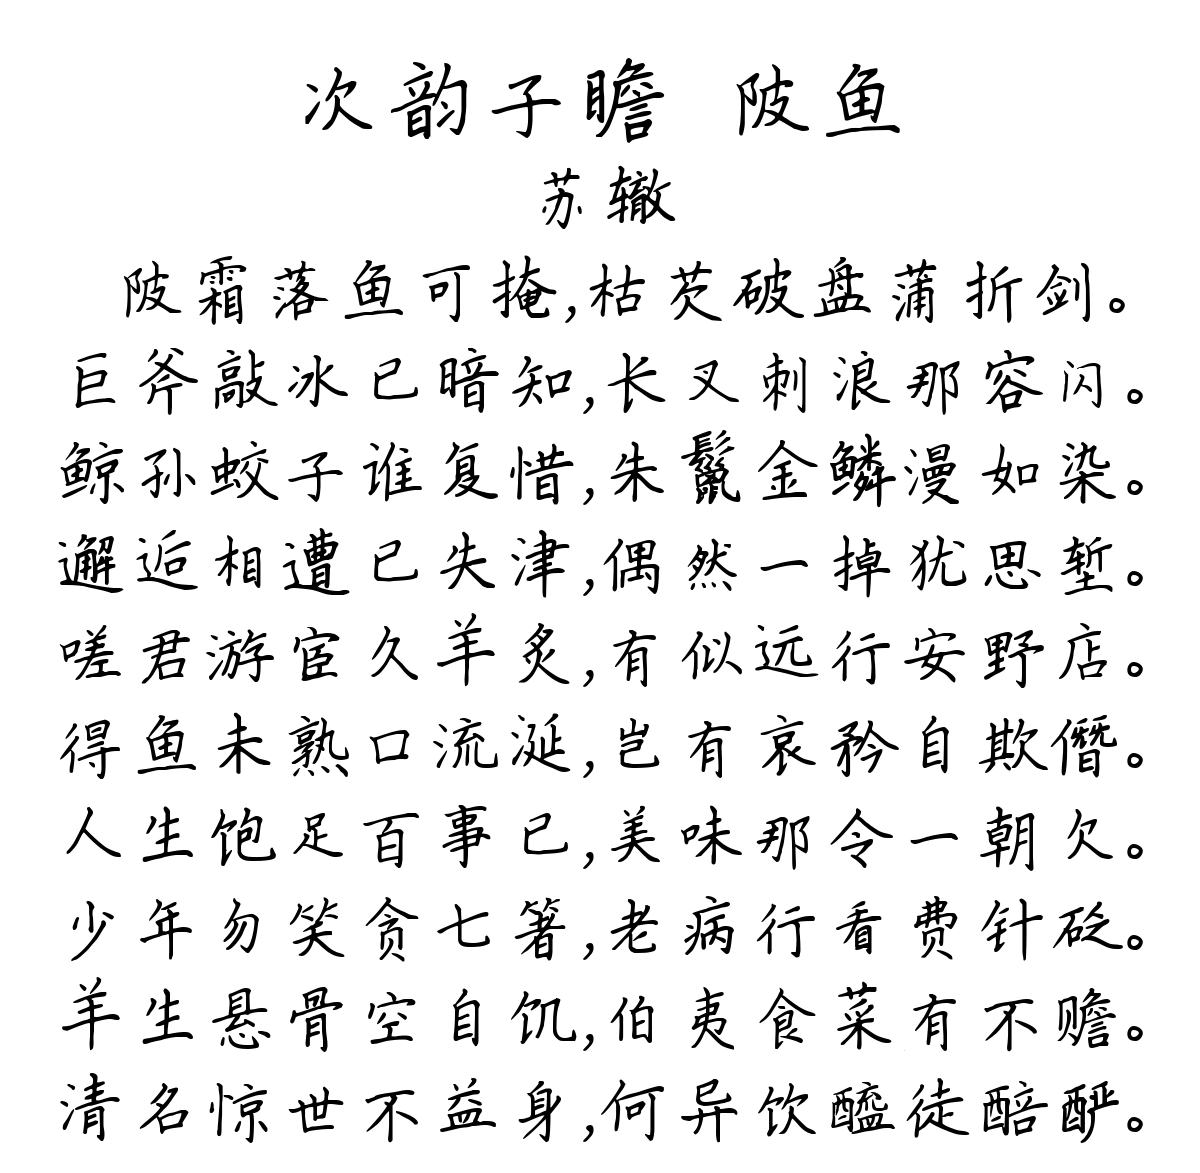 次韵子瞻 陂鱼
苏辙
陂霜落鱼可掩,枯芡破盘蒲折剑。
巨斧敲冰已暗知,长叉刺浪那容闪。
鲸孙蛟子谁复惜,朱鬣金鳞漫如染。
邂逅相遭已失津,偶然一掉犹思堑。
嗟君游宦久羊炙,有似远行安野店。
得鱼未熟口流涎,岂有哀矜自欺僭。
人生饱足百事已,美味那令一朝欠。
少年勿笑贪匕箸,老病行看费针砭。
羊生悬骨空自饥,伯夷食菜有不赡。
清名惊世不益身,何异饮醯徒醅酽。